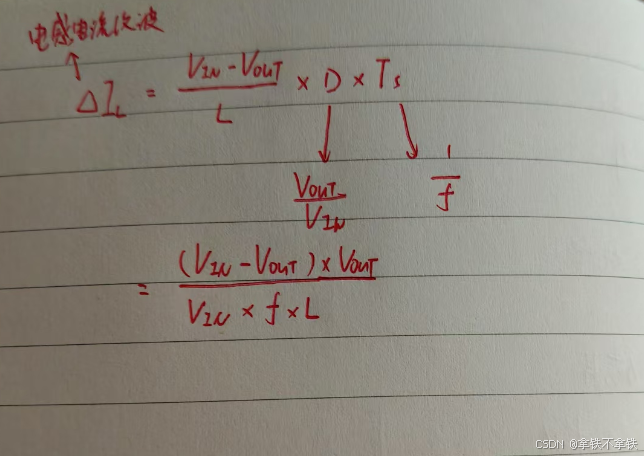 电感电流纹波
ΔIL = (VIN - VOUT) / L × D × Ts
VOUT / VIN
1 / f
= (VIN - VOUT) × VOUT / (VIN × f × L)
CSDN @拿铁不拿铁